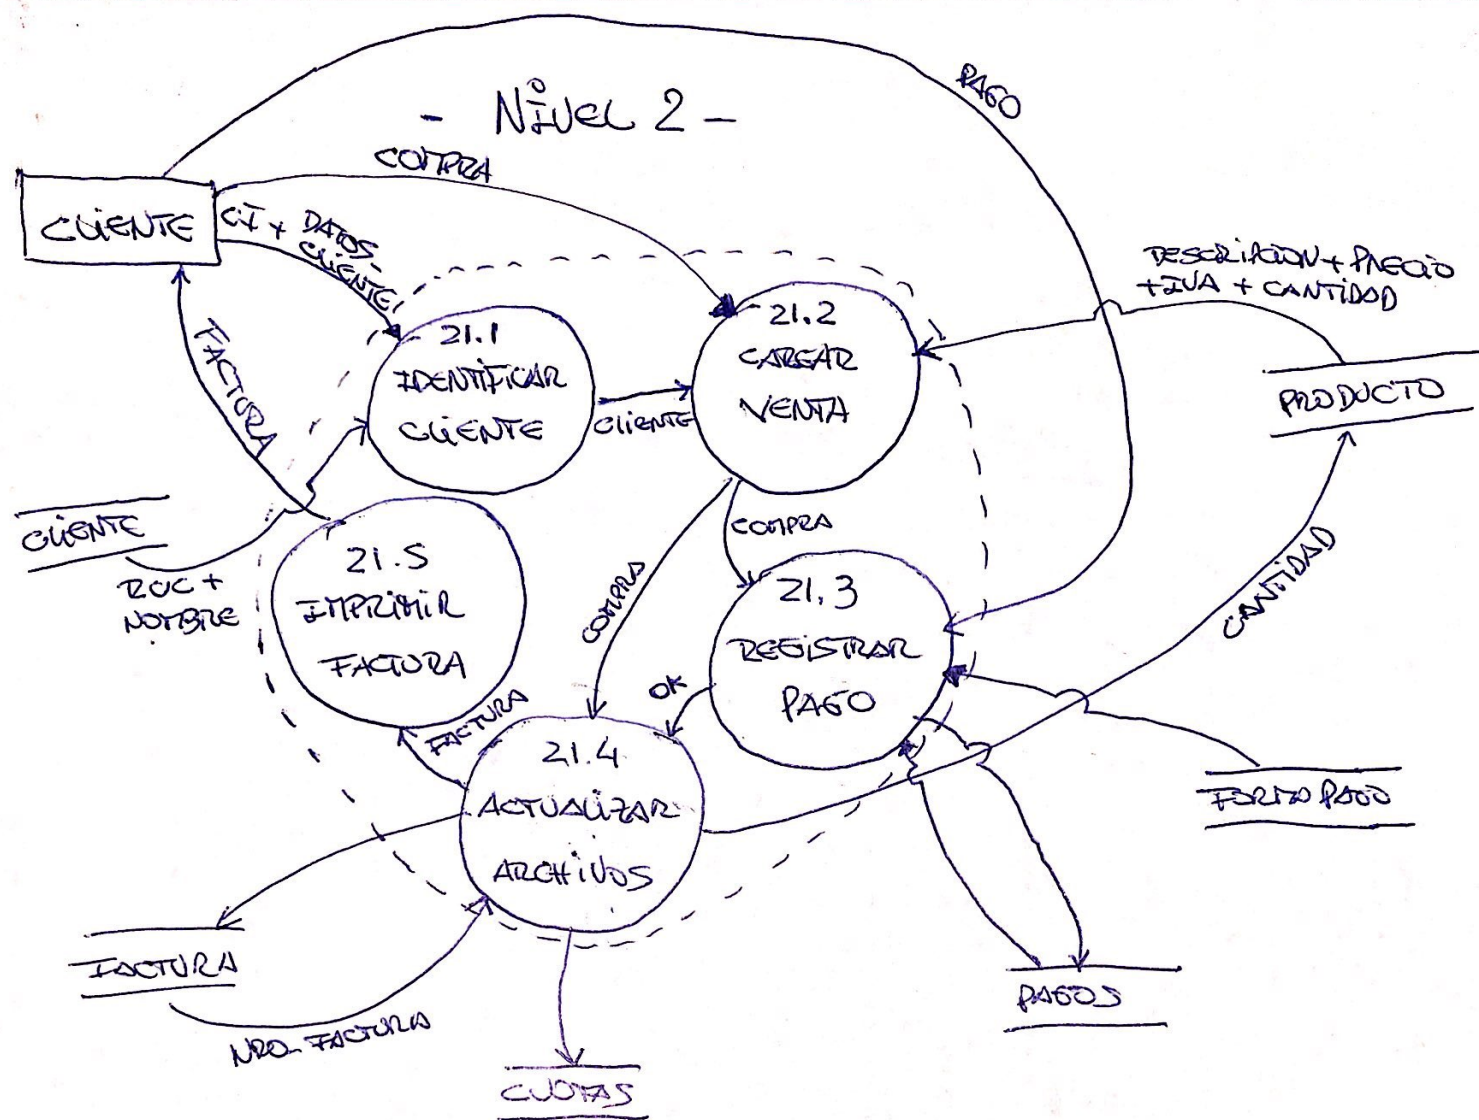 - NIVEL 2 -
PAGO
COMPRA
CLIENTE
CI + DATOS-
CLIENTE
DESCRIPCION + PRECIO
+ IVA + CANTIDAD
21.1
IDENTIFICAR
CLIENTE
CLIENTE
21.2
CARGAR
VENTA
PRODUCTO
FACTURA
CLIENTE
RUC +
NOMBRE
21.5
IMPRIMIR
FACTURA
COMPRA
COMPRA
21.3
REGISTRAR
PAGO
CANTIDAD
OK
FACTURA
21.4
ACTUALIZAR
ARCHIVOS
FORMA PAGO
FACTURA
NRO-FACTURA
PAGOS
CUOTAS